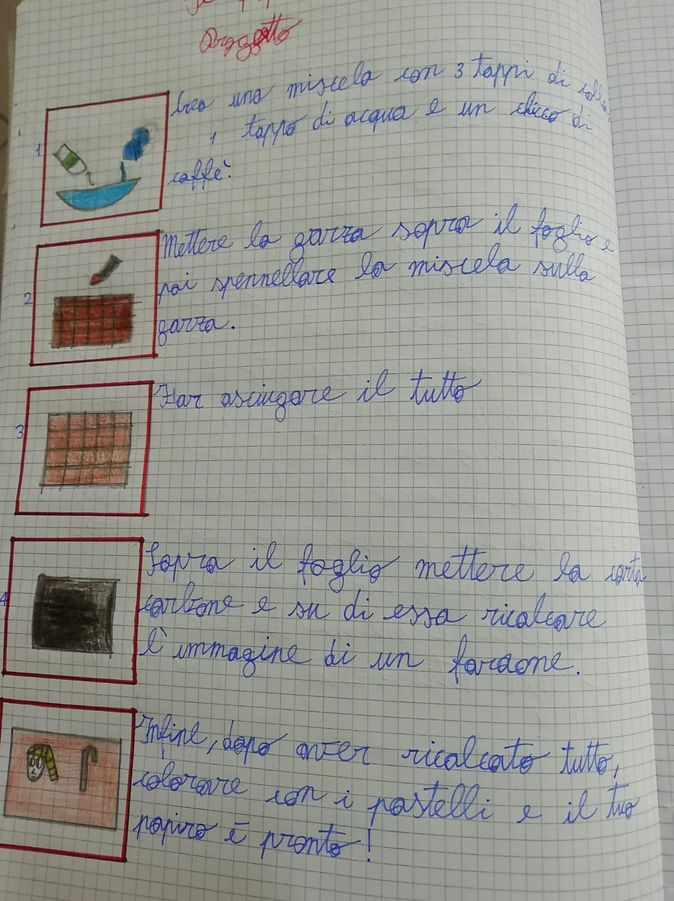 Oggetto
1
Crea una miscela con 3 tappi di colla
1 tappo di acqua e un chicco di
caffè.
2
Mettere la garza sopra il foglio e
poi spennellare la miscela sulla
garza.
3
Far asciugare il tutto
4
Sopra il foglio mettere la carta
carbone e su di essa ricalcare
l'immagine di un faraone.
Infine, dopo aver ricalcato tutto,
colorare con i pastelli e il tuo
papiro è pronto!